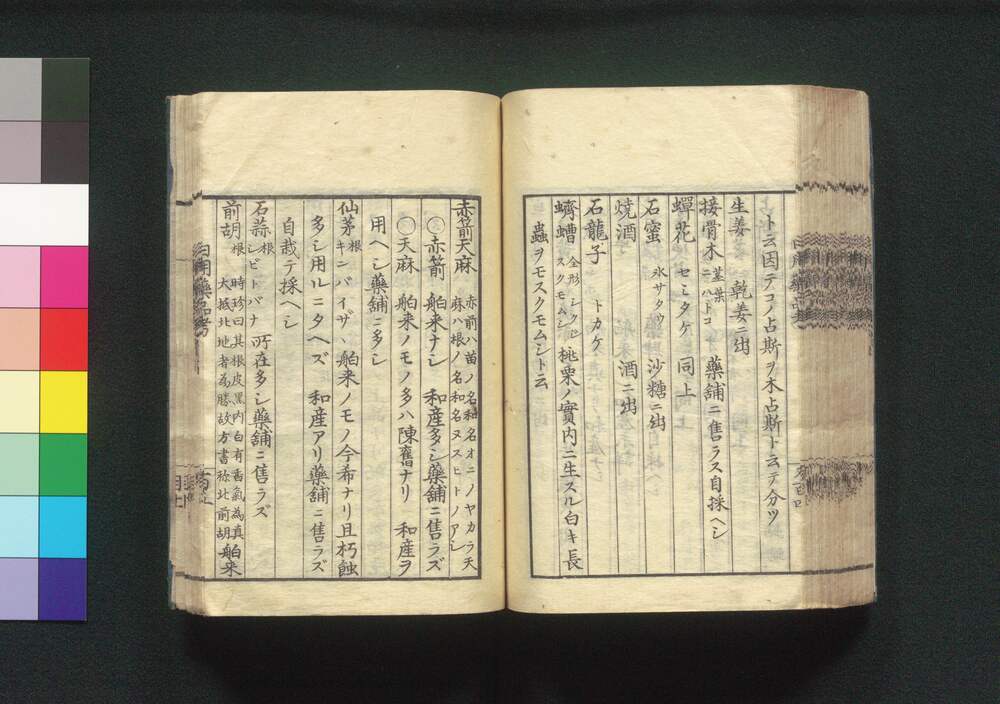 ト云因テコノ占斯ヲ木占斯ト云テ分ツ
生姜 乾姜ニ出
接骨木 茎葉 ニハトコ 藥舗ニ售ラス自採ヘシ
蟬花 セミタケ 同上
石蜜 氷サタウ 沙糖ニ出
焼酒 酒ニ出
石龍子 トカケ
蠐螬 全形 シクヒ スクモムシ 桃栗ノ實内ニ生スル白キ長
蟲ヲモスクモムシト云
赤箭天麻 赤箭ハ苗ノ名和名オニノヤカラ天
麻ハ根ノ名和名ヌスヒトノアシ
○赤箭 舶来ナシ 和産多シ藥舗ニ售ラズ
○天麻 舶来ノモノ多ハ陳舊ナリ 和産ヲ
用ヘシ藥舗ニ多シ
仙茅 根 キンバイザヽ 舶来ノモノ今希ナリ且朽蝕
多シ用ルニタヘズ 和産アリ藥舗ニ售ラズ
石蒜 根 シビトバナ 所在多シ藥舗ニ售ラズ
自栽テ採ヘシ
前胡 根 時珍曰其根皮黒内白有香氣為真
大抵北地者為勝故方書称北前胡 舶来
日用藥品考